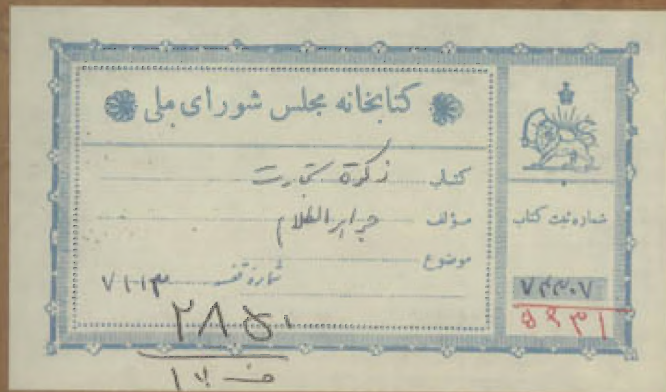 کتابخانه مجلس شورای ملی
کتاب زکوة تجارت
مؤلف جواهر الکلام
موضوع
شماره قفسه ۷۱۱۳
۲۸۵۰
شماره ثبت کتاب
۷۴۴۰۷